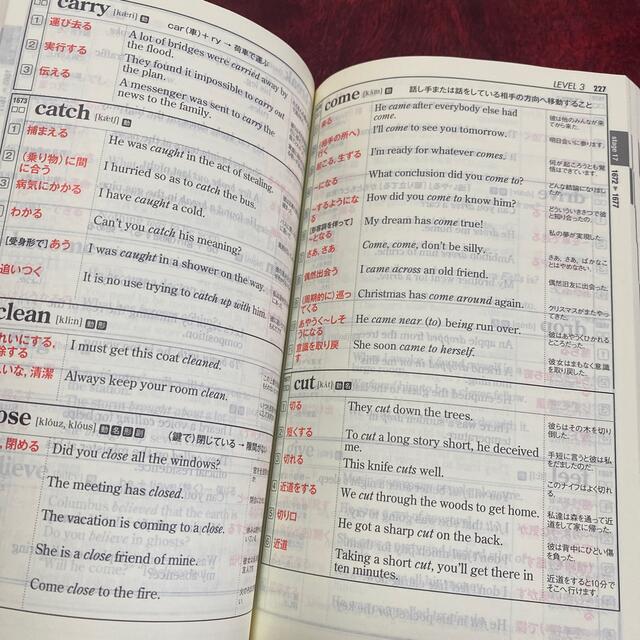 carry [kǽri] 動
car(車)+ry → 荷車で運ぶ
1 運び去る
A lot of bridges were carried away by
the flood.
2 実行する
They found it impossible to carry out
the plan.
3 伝える
A messenger was sent to carry the
news to the family.
1673
catch [kǽtʃ] 動
1 捕まえる
He was caught in the act of stealing.
2 (乗り物)に間
に合う
I hurried so as to catch the bus.
3 病気にかかる
I have caught a cold.
わかる
Can't you catch his meaning?
[受身形で] あう
I was caught in a shower on the way.
追いつく
It is no use trying to catch up with him.
clean [klíːn] 動 形
I must get this coat cleaned.
いな, 清潔
Always keep your room clean.
ose [klóuz, klóus] 動 名 形 副
(鍵で)閉じている → 隙間がない
, 閉める
Did you close all the windows?
The meeting has closed.
The vacation is coming to a close.
She is a close friend of mine.
Come close to the fire.
LEVEL 3 227
stage 17
1672 ▶ 1677
come [kʌ́m] 動
話し手または話をしている相手の方向へ移動すること
He came after everybody else had
come.
彼は他のみんなが来
てから来た。
(相手の所へ)
行く
I'll come to see you tomorrow.
明日会いに参ります。
起こる, 生ずる
I'm ready for whatever comes.
何が起ころうとも覚
悟はできている。
ーになる
What conclusion did you come to?
どんな結論になりまし
ーするように
なる
How did you come to know him?
どういういきさつで彼
と知り合ったの。
[形容詞を伴って]
ーとなる
My dream has come true!
私の夢が実現した。
さあ, さあ
Come, come, don't be silly.
さあ, さあ, ばかなこ
とはやめなさい。
偶然出会う
I came across an old friend.
偶然旧友に出会った
(周期的に)巡っ
てくる
Christmas has come around again.
クリスマスがまたやっ
てきた。
あやうく〜しそ
うになる
He came near (to) being run over.
彼はあやうくひかれる
ところだった。
意識を取り戻
す
She soon came to herself.
彼女はまもなく意識
を取り戻した。
cut [kʌ́t] 動 名
1 切る
They cut down the trees.
彼らはその木を切り
倒した。
2 短くする
To cut a long story short, he deceived
me.
手短に言うと彼は私
をだましたのだ。
3 切れる
This knife cuts well.
このナイフはよく切れ
る。
4 近道をする
We cut through the woods to get home.
私達は森を通って近
道をして家に帰った。
5 切り口
He got a sharp cut on the back.
彼は背中にひどい傷
を負った。
6 近道
Taking a short cut, you'll get there in
ten minutes.
近道をすると10分で
そこへ行けます。